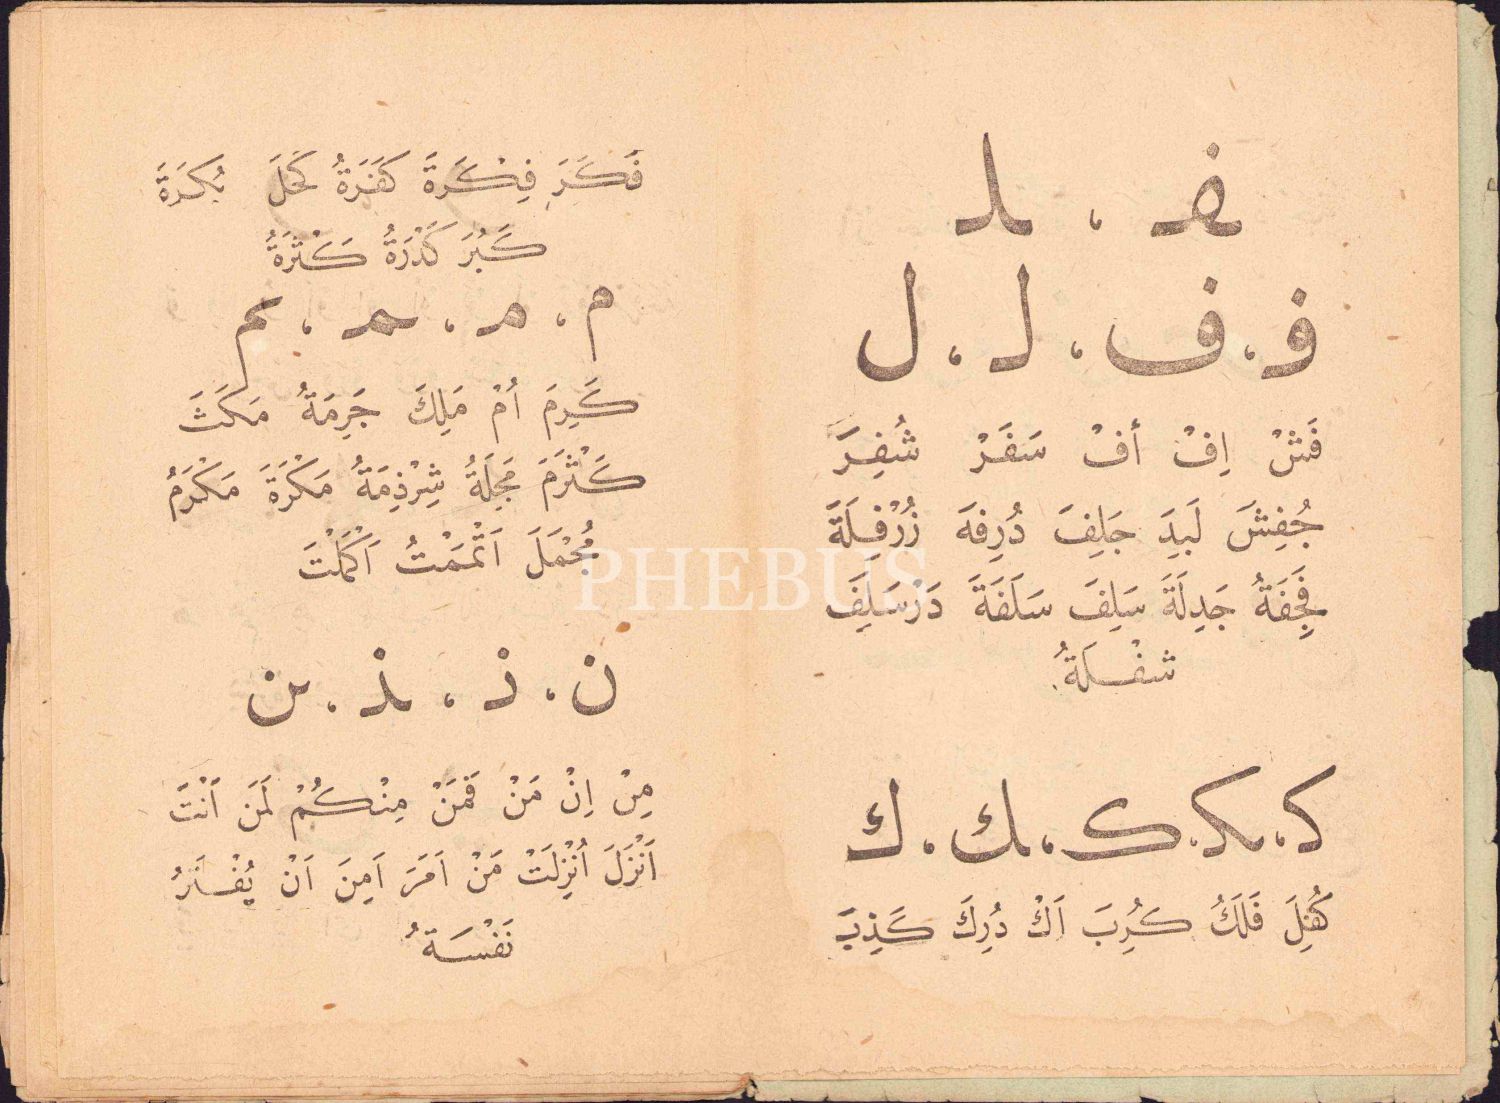 ـفـ . ـلـ
فـ . ف . لـ . ل
فَشْ اِفْ أفْ سَفَرْ شُفِرَّ
جُفِشَ لَبِدَ جَلِفَ دُرِفَه زُرْفِلَةَ
فَجِفَةُ جَدِلَةَ سَلِفَ سَلَفَةَ دَرْسَلِفَ
شفْلَةُ
كـ . ـكـ . ك . ـك . ك
كُهِلَ فَلَكُ كَرُبَ اَكْ دُرِكَ كَذِبَ
فَكَرَ فِكْرَةَ كَفَرَةُ كَحَلَ بُكْرَةَ
كَبُرَ كَدْرَةُ كَثْرَةُ
م . مـ . ـمـ . ـم
كَرِمَ اُمْ مَلِكَ جَرِمَةُ مَكَثَ
كَثْرَمَ مَجِلَةُ شِرْذِمَةُ مَكْرَةَ مَكْرَمُ
مُجْمَلَ اَتْمَمْتُ اَكْمَلْتَ
PHEBUS
ن . نـ . ـنـ . ـن
مِنْ اِنْ مَنْ فَمَنْ مِنْكُمْ لَمَن اَنْتَ
اَنْزَلَ اُنْزِلَتْ مَنْ اَمَرَ اَمِنَ اَنْ
نَفْسَةُ